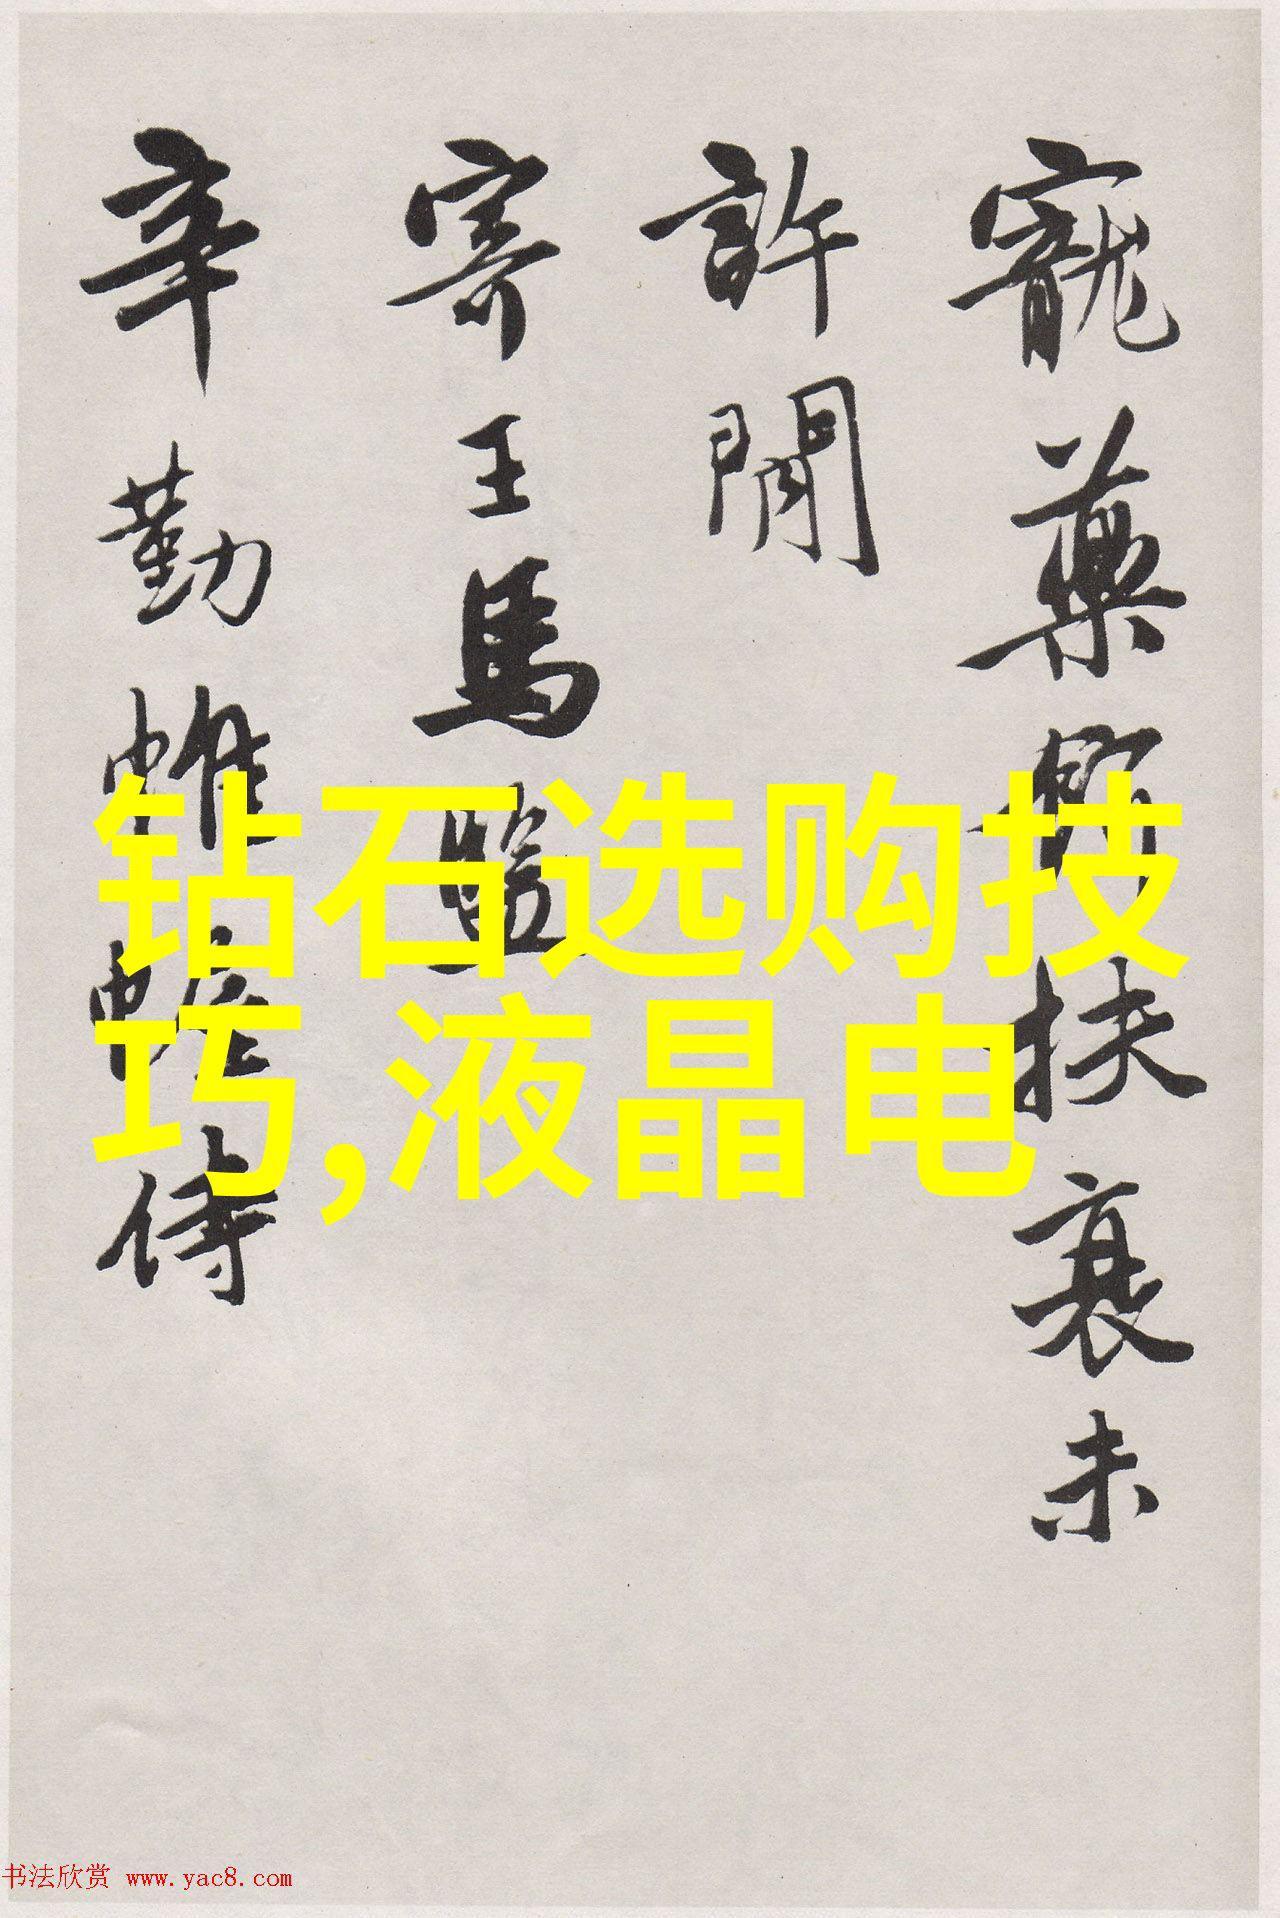 寵藥餌扶衰未
許閒
寄王馬
辛勤帷幄侍
钻石选购技
巧,液晶电
书法欣赏 www.yac8.com